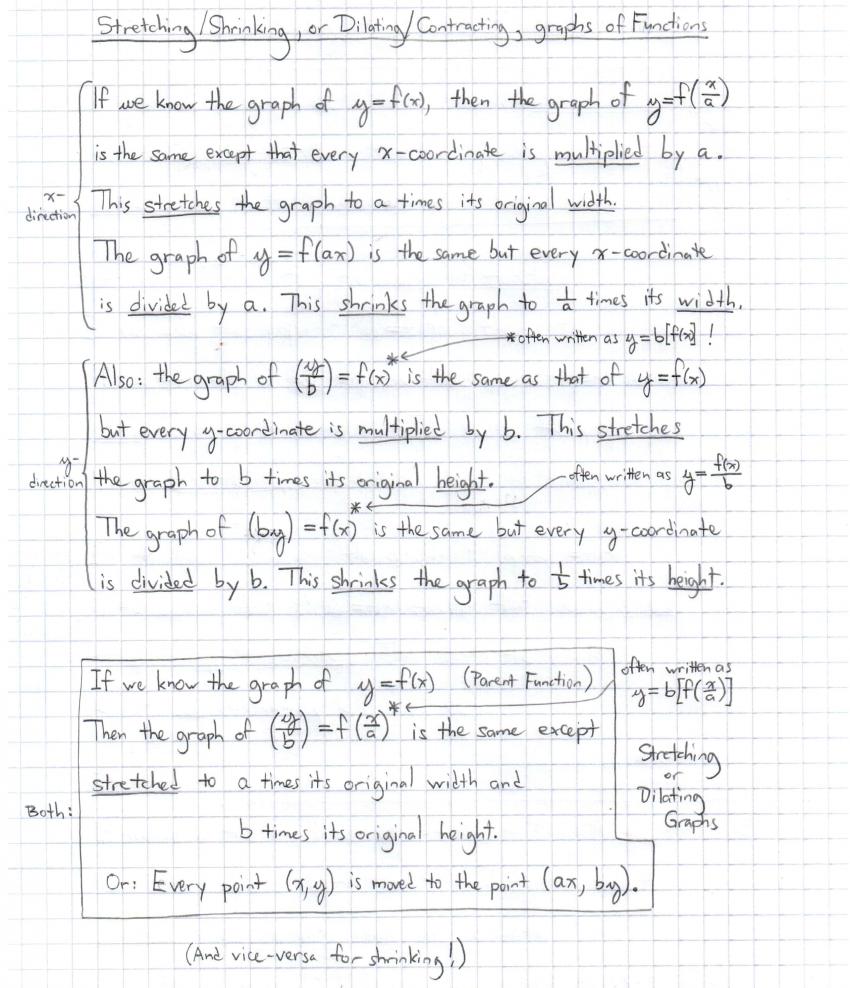 Stretching/Shrinking, or Dilating/Contracting, graphs of Functions
If we know the graph of y=f(x), then the graph of y=f(x/a)
is the same except that every x-coordinate is multiplied by a.
x-direction
This stretches the graph to a times its original width.
The graph of y=f(ax) is the same but every x-coordinate
is divided by a. This shrinks the graph to 1/a times its width.
*often written as y=b[f(x)] !
Also: the graph of (y/b)=f(x)* is the same as that of y=f(x)
but every y-coordinate is multiplied by b. This stretches
y-direction
the graph to b times its original height.
often written as y=f(x)/b
The graph of (by)=f(x)* is the same but every y-coordinate
is divided by b. This shrinks the graph to 1/b times its height.
If we know the graph of y=f(x) (Parent Function)
often written as
y=b[f(x/a)]
Then the graph of (y/b)=f(x/a)* is the same except
stretched to a times its original width and
Stretching
or
Dilating
Graphs
Both:
b times its original height.
Or: Every point (x,y) is moved to the point (ax, by).
(And vice-versa for shrinking!)